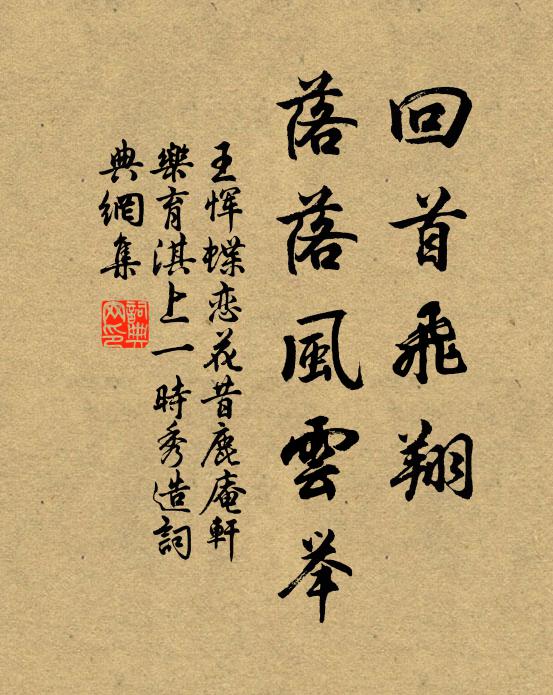 回首飛翔
落落風雲举
王恽蝶恋花昔鹿庵軒
樂育淇上一時秀造詞
典網集
詞典
网印